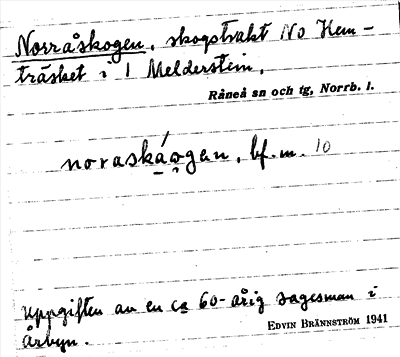 Norråskogen, skogstrakt No Hem-
träsket i 1 Melderstein.
Råneå sn och tg, Norrb. l.
noraskáogen, bf. m. 10
Uppgiften av en ca 60-årig sagesman i
Årbyn.
EDVIN BRÄNNSTRÖM 1941